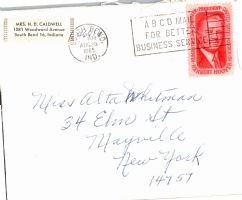 MRS. H. D. CALDWELL
1051 Woodward Avenue
South Bend 16, Indiana
AUG
1965
IND.
A B C D MAIL
FOR BETTER
BUSINESS SERVICE
PRESIDENT
HERBERT HOOVER
Miss Alta Whitman
34 Elm St
Mayville
New York
14757